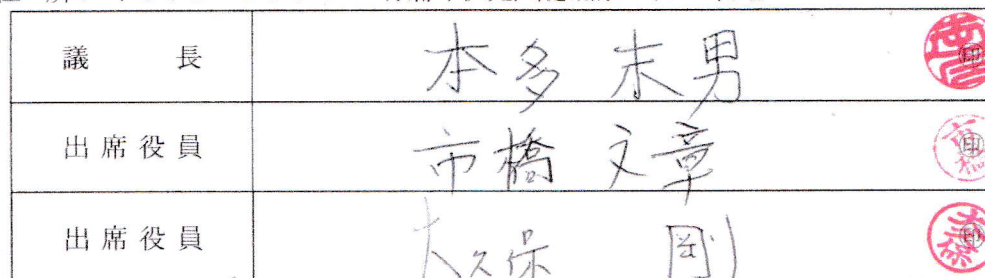 議長 本多 末男 印
出席役員 市橋 文章 印
出席役員 大久保 剛 印